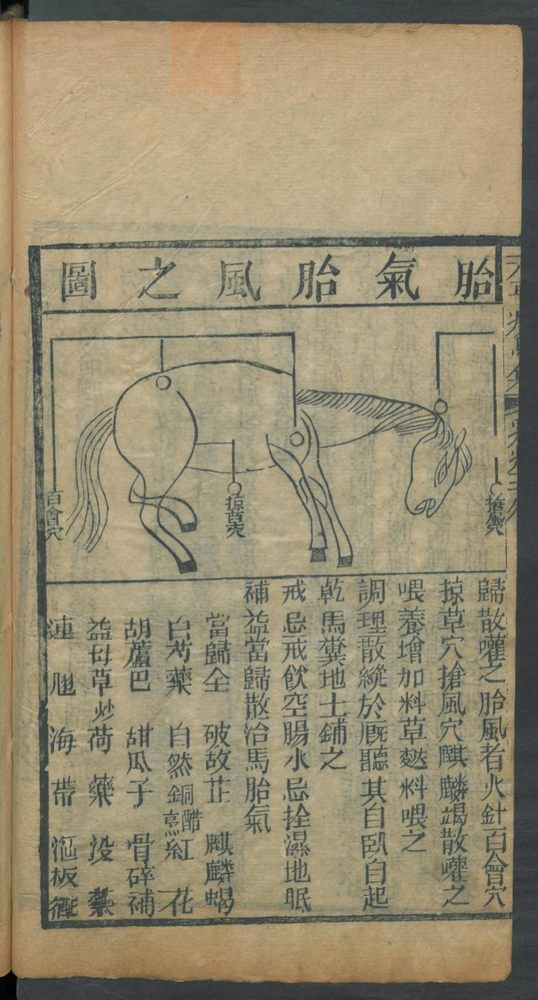 胎氣胎風之圖
搶風穴
掠草穴
百會穴
歸散嚾之胎風者火針百會穴
掠草穴搶風穴麒麟竭散嚾之
喂養增加料草麩料喂之
調理散縱於厩聽其自臥自起
乾馬糞地土鋪之
戒忌戒飲空腸水忌拴濕地眠
補益當歸散治馬胎氣
當歸全 破故芷 麒麟蝎
白芍藥 自然銅醋烹 紅花
胡蘆巴 甜瓜子 骨碎補
益母草炒 荷藥 沒藥
連翹 海帶 漚板